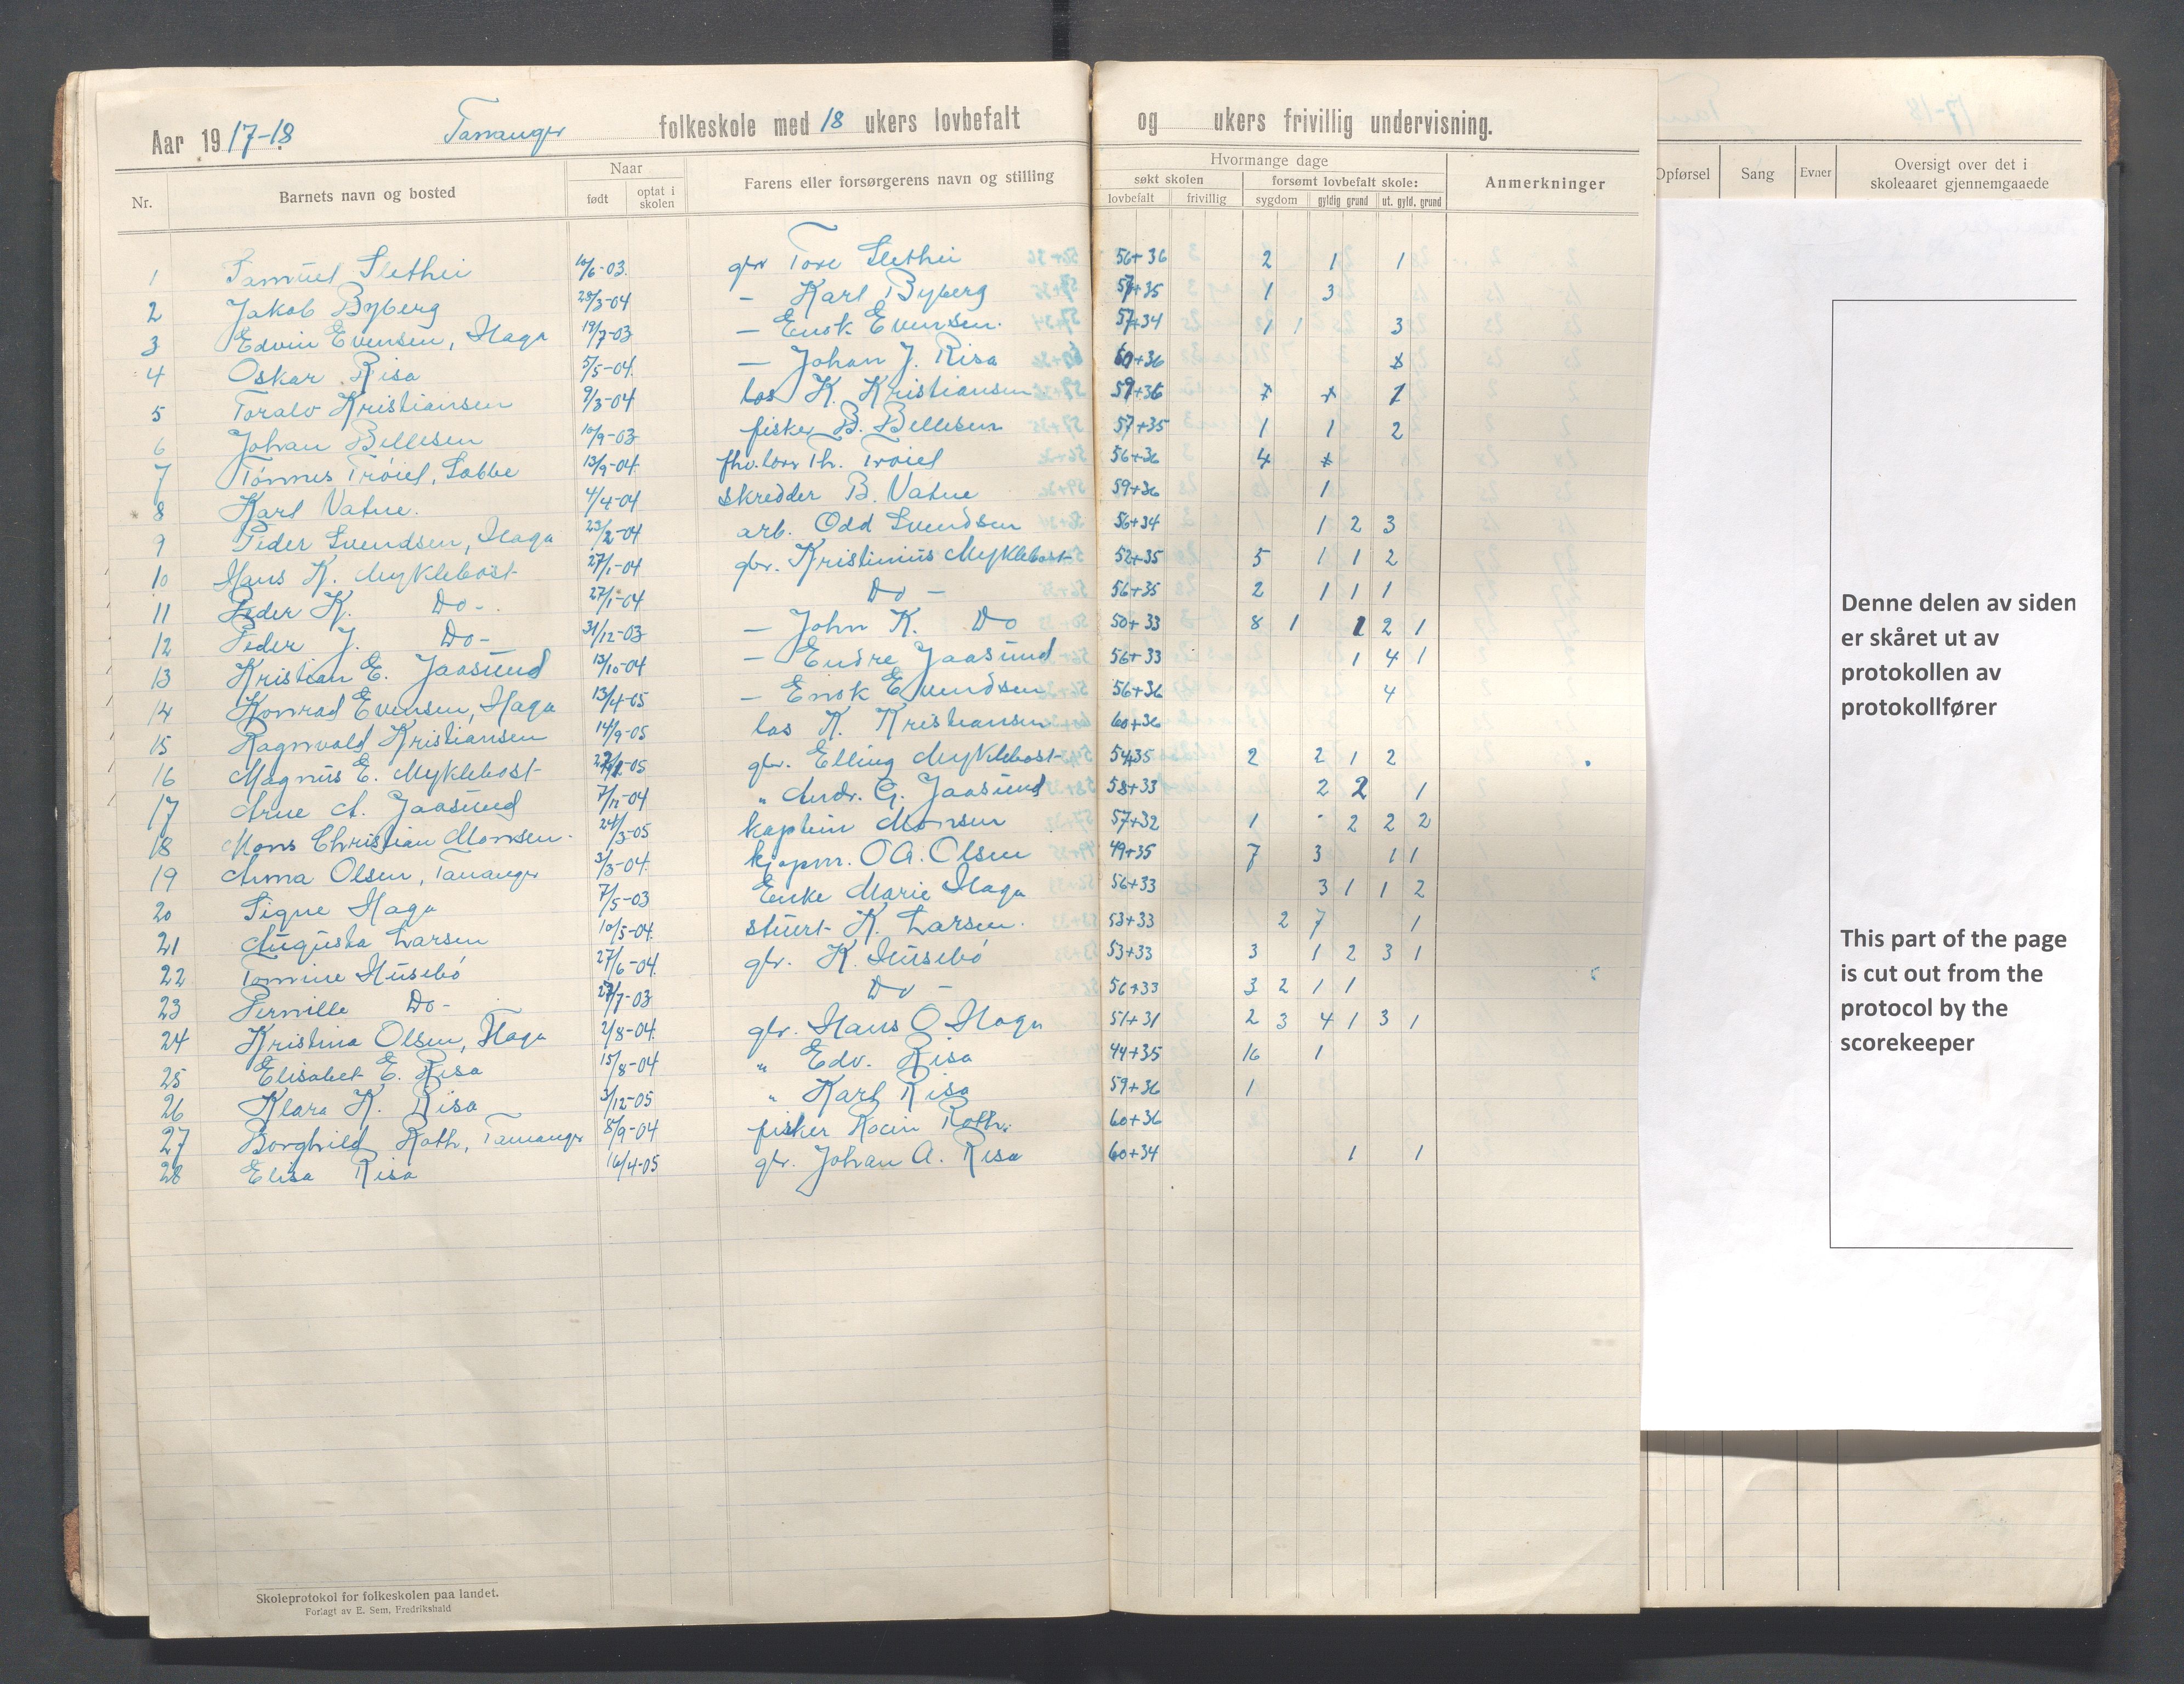 Aar 1917-18 Tananger folkeskole med 18 ukers lovbefalt og ukers frivillig undervisning.
Nr. Barnets navn og bosted Naar født optat i skolen Farens eller forsørgerens navn og stilling Hvormange dage søkt skolen lovbefalt frivillig forsømt lovbefalt skole: sygdom gyldig grund ut. gyld. grund Anmerkninger
Opførsel Sang Evner Oversigt over det i skoleaaret gjennemgaaede
1 Samuel Slethei 10/6-03 gbr Tore Slethei 56+36 2 1 1
2 Jakob Byberg 28/3-04 - Karl Byberg 57+35 1 3
3 Edvin Evensen, Haga 19/7-03 - Enok Evensen. 57+34 1 1 3
4 Oskar Risa 5/5-04. - Johan J. Risa 60+36
5 Toralv Kristiansen 9/3-04 los K. Kristiansen 59+36 1
6 Johan Bellesen 10/9-03 fisker B. Bellesen 57+35 1 1 2
7 Tönnes Tröiel, Sabbe 13/9-04 fhv. los Th. Tröiel 56+36 4
8 Karl Vatne. 4/4-04 skredder B. Vatne 59+36 1
9 Peder Svendsen, Haga 23/2-04 arb. Odd Svendsen 56+34 1 2 3
10 Hans K. Myklebost 27/1-04 gbr. Kristinius Myklebost 52+35 5 1 1 2
11 Peder K. Do-. 27/1-04 Do - 56+35 2 1 1 1
12 Peder J. Do- 31/12-03 - John K. Do 50+33 8 1 1 2 1
13 Kristian E. Jaasund 13/10-04 - Endre Jaasund 56+33 1 4 1
14 Konrad Evensen, Haga 13/4-05 - Enok Evendsen 56+36 4
15 Ragnvald Kristiansen 14/9-05 los K. Kristiansen 60+36
16 Magnus E. Myklebost -05 gbr. Elling Myklebost 54+35 2 2 1 2
17 Arne A. Jaasund 7/12-04 " Andr. G. Jaasund 58+33 2 2 1
18 Mons Christian Monsen 24/3-05 kaptein Monsen 57+32 1 2 2 2
19 Anna Olsen, Tananger 3/3-04. kjøpm. O.A. Olsen 49+35 7 3 1 1
20 Signe Haga 7/5-03 Enke Marie Haga 56+33 3 1 1 2
21 Augusta Larsen 10/5-04. stuert K. Larsen. 53+33 2 7 1
22 Tomine Husebö 27/6-04. gbr. K. Husebö 53+33 3 1 2 3 1
23 Pernille Do- 27/7-03 Do - 56+33 3 2 1 1
24 Kristina Olsen, Haga 2/8-04. gbr. Hans O. Haga 51+31 2 3 4 1 3 1
25 Elisabet E. Risa 15/8-04 " Edv. Risa 44+35 16 1
26 Klara K. Risa 3/12-05 " Karl Risa 59+36 1
27 Borghild Roth, Tananger 8/9-04 fisker Roth. 60+36
28 Elisa Risa 16/4-05 gbr. Johan A. Risa 60+34 1 1
Skoleprotokol for folkeskolen paa landet.
Forlagt av E. Sem, Fredrikshald
Denne delen av siden
er skåret ut av
protokollen av
protokollfører
This part of the page
is cut out from the
protocol by the
scorekeeper